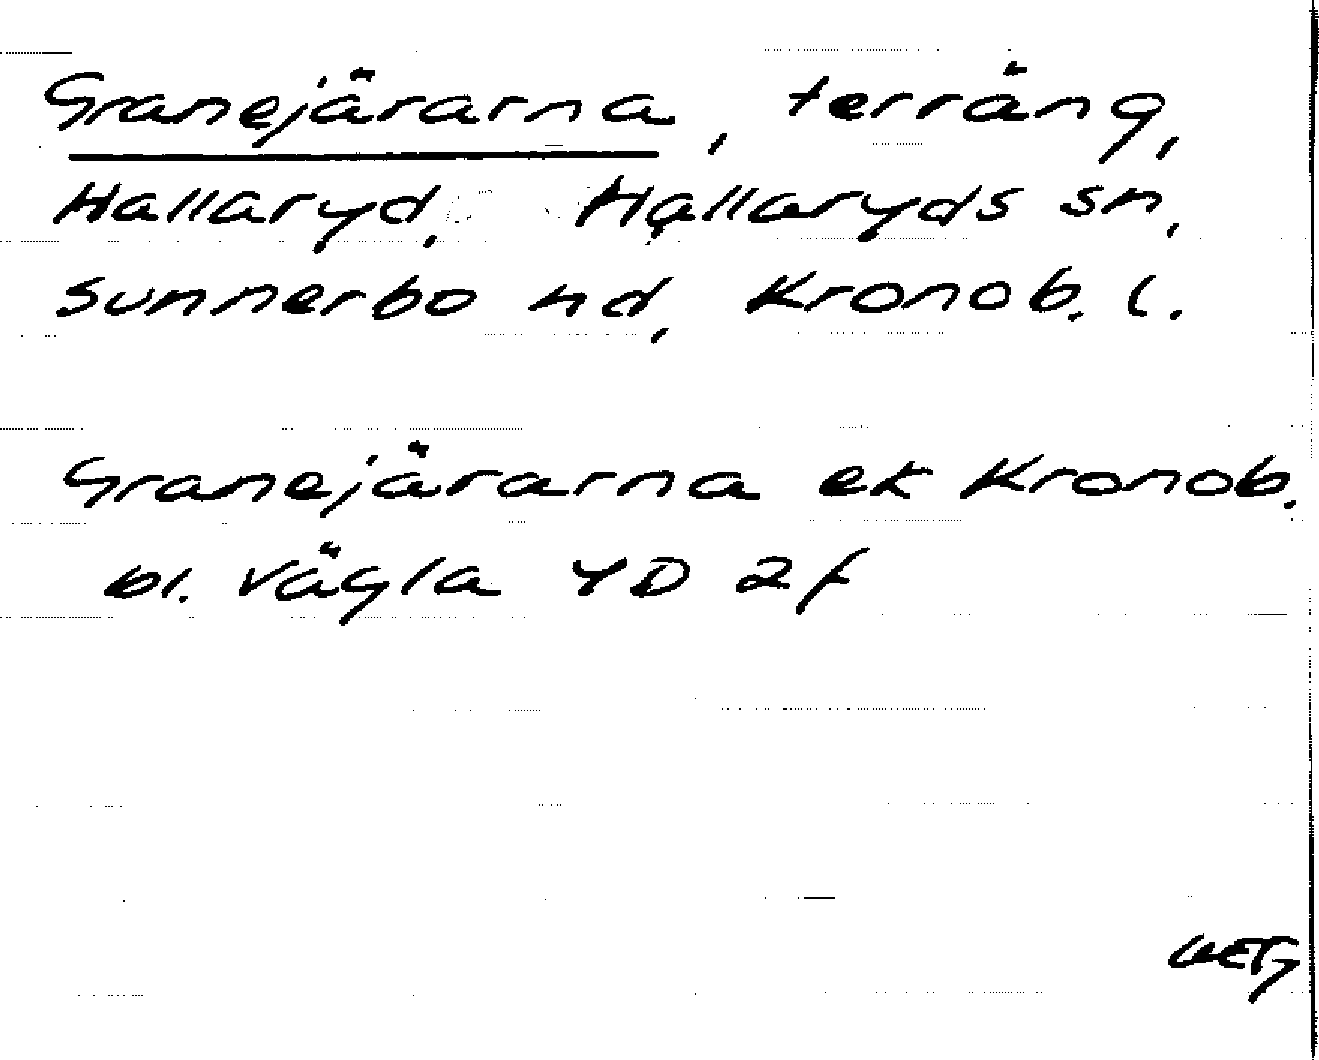 Granejärarna, terräng,
Hallaryd, Hallaryds sn,
Sunnerbo hd, Kronob. l.
Granejärarna ek Kronob.
bl. Vägla 4D 2f